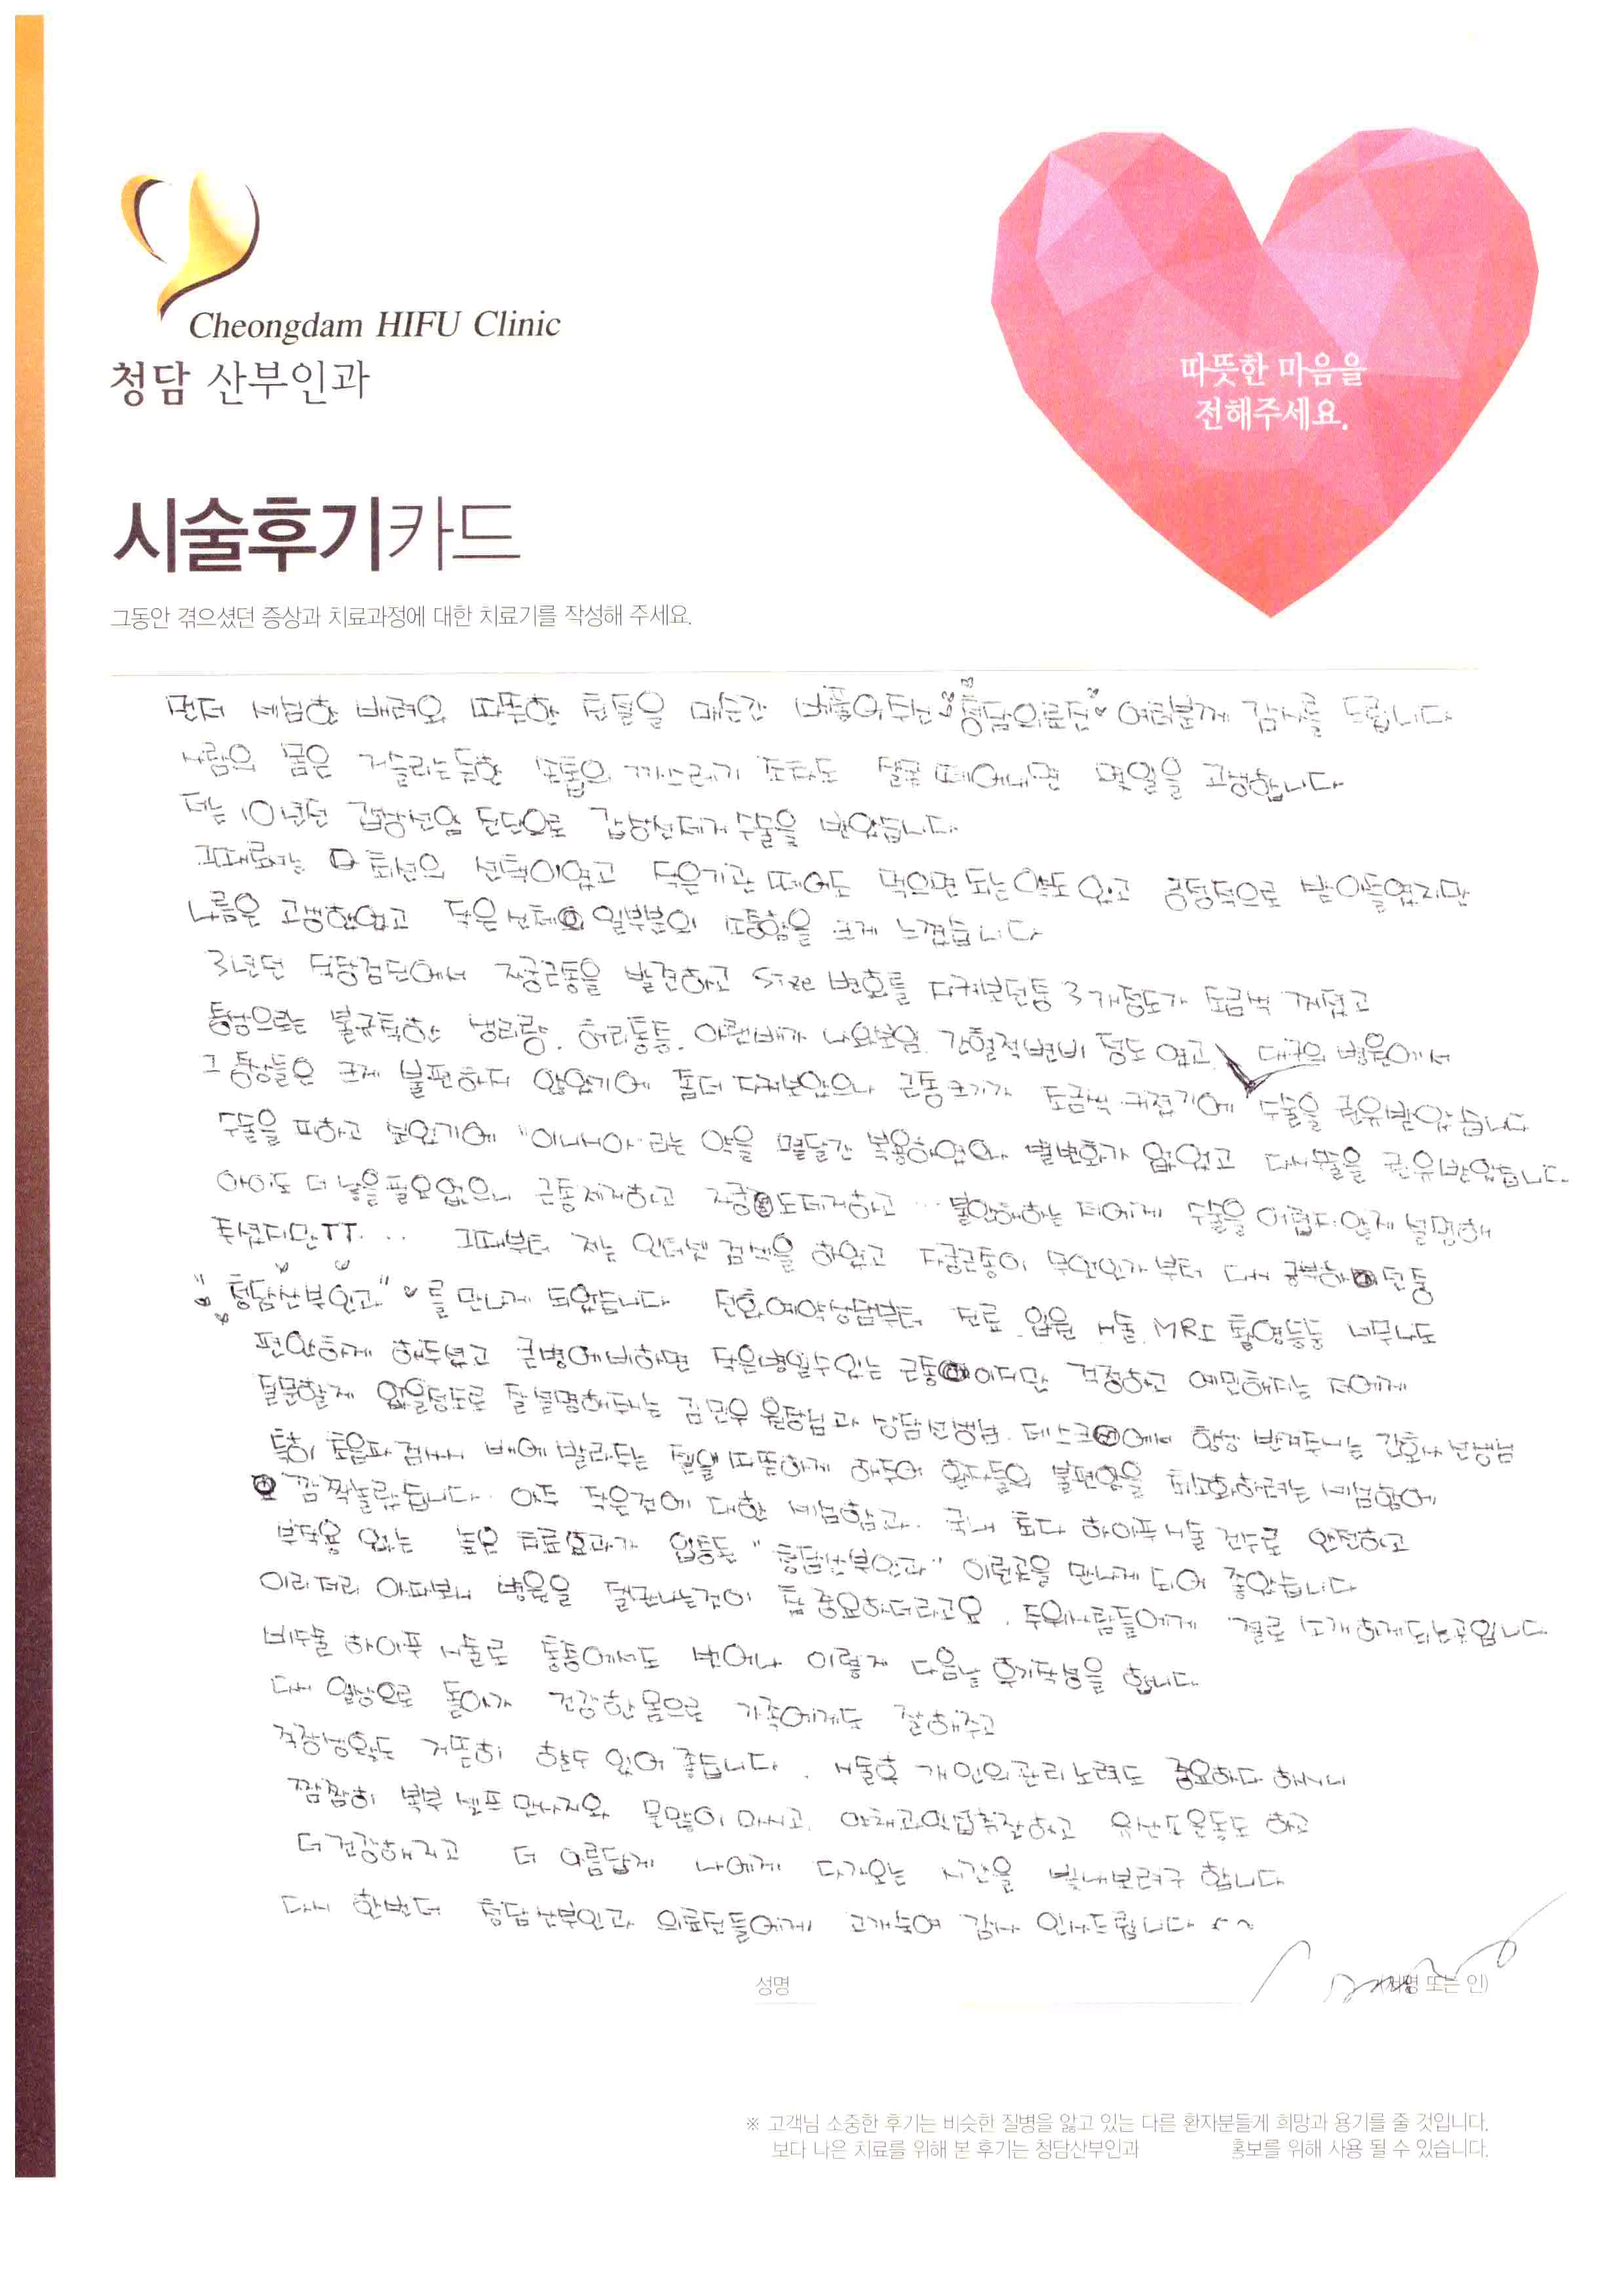 Cheongdam HIFU Clinic
청담 산부인과
따뜻한 마음을
전해주세요.
시술후기카드
그동안 겪으셨던 증상과 치료과정에 대한 치료기를 작성해 주세요.
먼저 세심한 배려와 따뜻한 친절을 매순간 베풀어주신 "청담의료진" 여러분께 감사를 드립니다
사람의 몸은 거슬리는듯한 손톱의 까스래기 조차도 잘못 떼어내면 몇일을 고생합니다
저는 10년전 갑상선암 진단으로 갑상선제거 수술을 받았습니다.
그때로서는 최선의 선택이였고 작은기관 떼어도 먹으면 되는 약도 있고 긍정적으로 받아들였지만
나름은 고생했었고 작은 신체의 일부분의 소중함을 크게 느꼈습니다
3년전 직장검진에서 자궁근종을 발견하고 Size 변호를 지켜보던중 3개정도가 조금씩 커졌고
증상으로는 불규칙한 생리량, 허리통증, 아랫배가 나와보임, 간헐적변비 정도 였고 대구의 병원에서
그 증상들은 크게 불편하지 않았기에 좀더 지켜보았으나 근종크기가 조금씩 커졌기에 수술을 권유받았습니다
수술을 피하고 싶었기에 "이니시아"라는 약을 몇달간 복용하였으나 별변화가 없었고 다시수술을 권유받았습니다.
아이도 더 낳을필요없으니 근종제거하고 자궁도제거하고 … 불안해하는 저에게 수술을 어렵지않게 설명해
주셨지만TT. . . 그때부터 저는 인터넷 검색을 하였고 자궁근종이 무엇인가 부터 다시 공부하던중
"청담산부인과"를 만나게 되었습니다 전화예약상담부터 진료, 입원, 시술, MRI 촬영등등 너무나도
편안하게 해주셨고 큰병에비하면 작은병일수있는 근종이지만 걱정하고 예민해지는 저에게
질문할게 없을정도로 잘설명해주시는 김민우 원장님과 상담선생님, 데스크에서 항상 반겨주시는 간호사 선생님
특히 초음파 검사시 배에 발라주는 젤을 따뜻하게 해주어 환자들의 불편함을 최소화하려는 세심함에
깜짝놀랐습니다. 아주 작은것에 대한 세심함과. 국내 최다 하이푸시술 건수로 안전하고
부작용 없는 높은 치료효과가 입증된 "청담산부인과" 이런곳을 만나게 되어 좋았습니다
이리저리 아파보니 병원을 잘만나는것이 참 중요하더라고요. 주위사람들에게 절로 소개하게되는곳입니다.
비수술 하이푸 시술로 통증에서도 벗어나 이렇게 다음날 후기작성을 합니다.
다시 일상으로 돌아가 건강한몸으로 가족에게도 잘해주고
직장생활도 거뜬히 할수 있어 좋습니다. 시술후 개인의관리노력도 중요하다 하시니
짬짬히 복부 셀프 만사지와 물많이 마시고, 야채과일섭취잘하고 유산소운동도 하고
더 건강해지고 더 아름답게 나에게 다가오는 시간을 빛내보려구 합니다
다시 한번더 청담산부인과 의료진들에게 고개숙여 감사 인사드립니다~~
성명 (서명 또는 인)
※ 고객님 소중한 후기는 비슷한 질병을 앓고 있는 다른 환자분들게 희망과 용기를 줄 것입니다.
보다 나은 치료를 위해 본 후기는 청담산부인과 홍보를 위해 사용 될 수 있습니다.